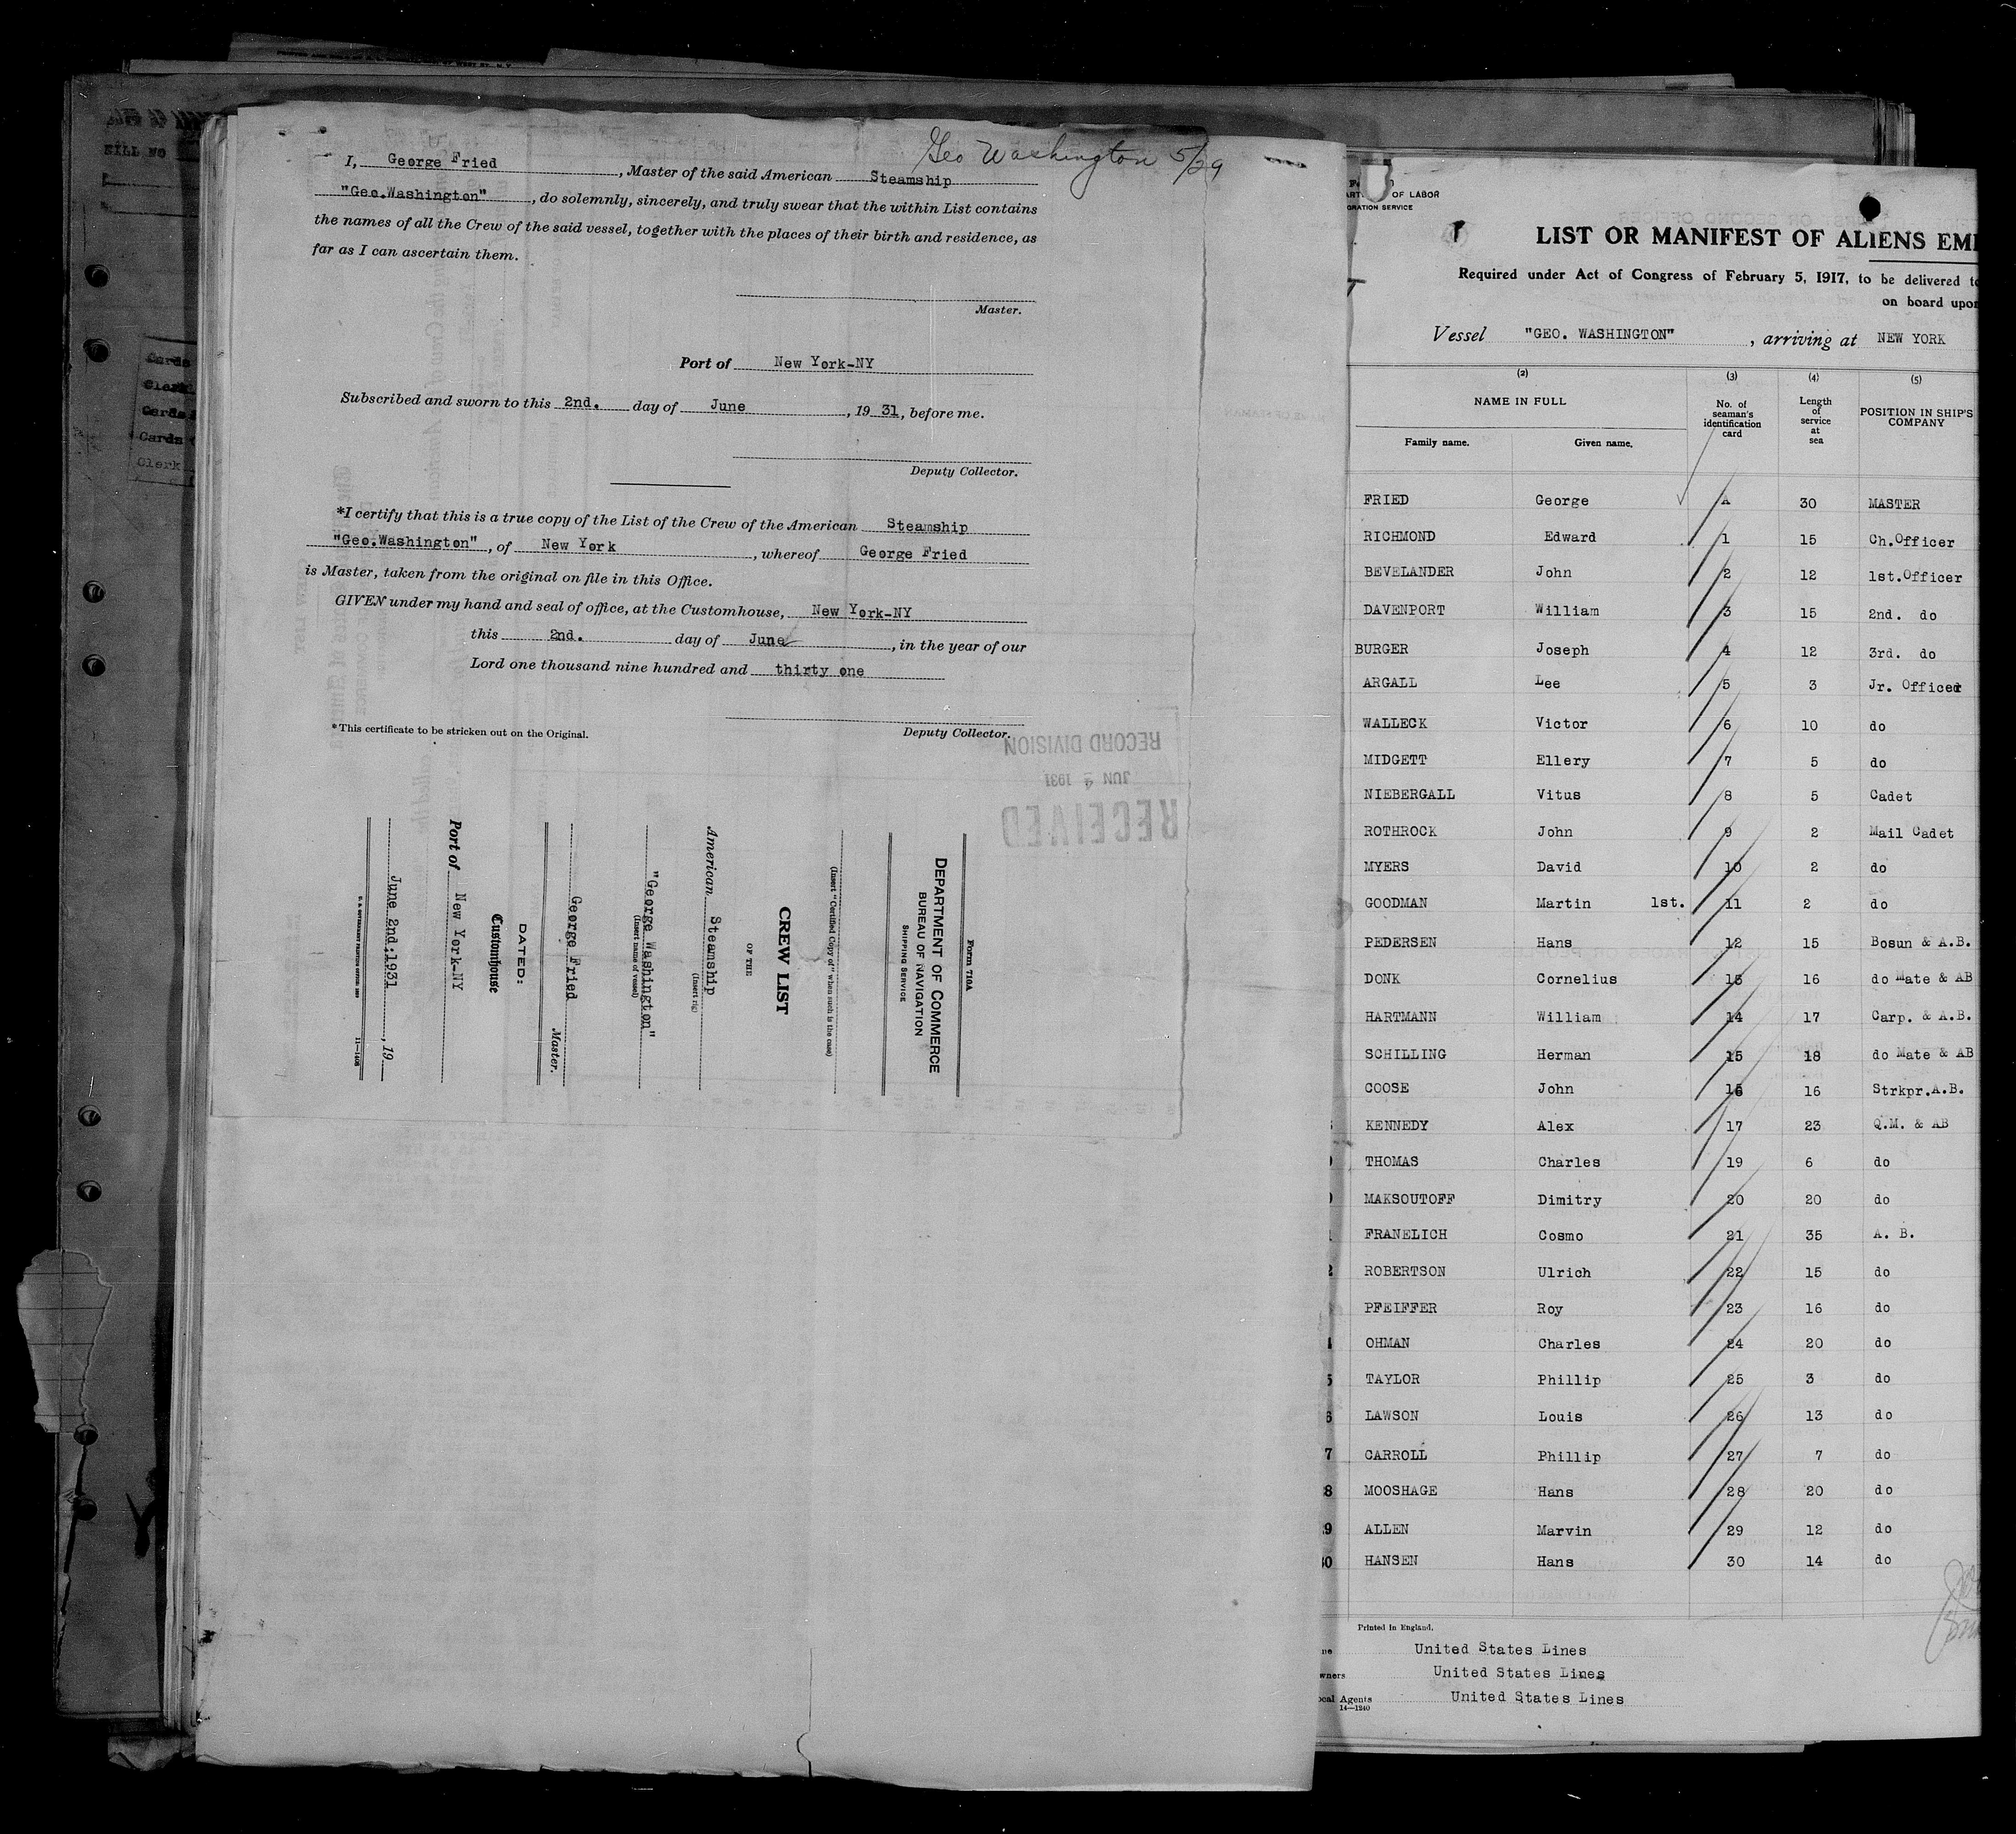 Geo Washington 5/29
I, George Fried, Master of the said American Steamship
"Geo.Washington", do solemnly, sincerely, and truly swear that the within List contains
the names of all the Crew of the said vessel, together with the places of their birth and residence, as
far as I can ascertain them.
Master.
Port of New York-NY
Subscribed and sworn to this 2nd. day of June, 19 31, before me.
Deputy Collector.
*I certify that this is a true copy of the List of the Crew of the American Steamship
"Geo.Washington", of New York, whereof George Fried
is Master, taken from the original on file in this Office.
GIVEN under my hand and seal of office, at the Customhouse, New York-NY
this 2nd. day of June, in the year of our
Lord one thousand nine hundred and thirty one
*This certificate to be stricken out on the Original.
Deputy Collector.
RECEIVED
JUN 4 1931
RECORD DIVISION
Form 710A
DEPARTMENT OF COMMERCE
BUREAU OF NAVIGATION
SHIPPING SERVICE
(Insert "Certified Copy of" when such is the case)
CREW LIST
OF THE
American Steamship
(Insert rig)
"George Washington"
(Insert name of vessel)
George Fried Master.
DATED:
Customhouse
Port of New York-NY
June 2nd:1931, 19
11-1408
BILL NO
Cards
Clerk
Cards
Cards
Clerk
OF LABOR
GRATION SERVICE
LIST OR MANIFEST OF ALIENS EM
Required under Act of Congress of February 5, 1917, to be delivered to
on board upon
Vessel "GEO. WASHINGTON", arriving at NEW YORK
(2) (3) (4) (5)
NAME IN FULL
Family name. Given name.
No. of seaman's identification card
Length of service at sea
POSITION IN SHIP'S COMPANY
FRIED George A 30 MASTER
RICHMOND Edward 1 15 Ch.Officer
BEVELANDER John 2 12 1st.Officer
DAVENPORT William 3 15 2nd. do
BURGER Joseph 4 12 3rd. do
ARGALL Lee 5 3 Jr. Officer
WALLECK Victor 6 10 do
MIDGETT Ellery 7 5 do
NIEBERGALL Vitus 8 5 Cadet
ROTHROCK John 9 2 Mail Cadet
MYERS David 10 2 do
GOODMAN Martin 1st. 11 2 do
PEDERSEN Hans 12 15 Bosun & A.B.
DONK Cornelius 13 16 do Mate & AB
HARTMANN William 14 17 Carp. & A.B.
SCHILLING Herman 15 18 do Mate & AB
COOSE John 16 16 Strkpr.A.B.
KENNEDY Alex 17 23 Q.M. & AB
THOMAS Charles 19 6 do
MAKSOUTOFF Dimitry 20 20 do
FRANELICH Cosmo 21 35 A. B.
ROBERTSON Ulrich 22 15 do
PFEIFFER Roy 23 16 do
OHMAN Charles 24 20 do
TAYLOR Phillip 25 3 do
LAWSON Louis 26 13 do
7 CARROLL Phillip 27 7 do
8 MOOSHAGE Hans 28 20 do
9 ALLEN Marvin 29 12 do
30 HANSEN Hans 30 14 do
Printed in England.
United States Lines
wners United States Lines
ocal Agents United States Lines
14-1240